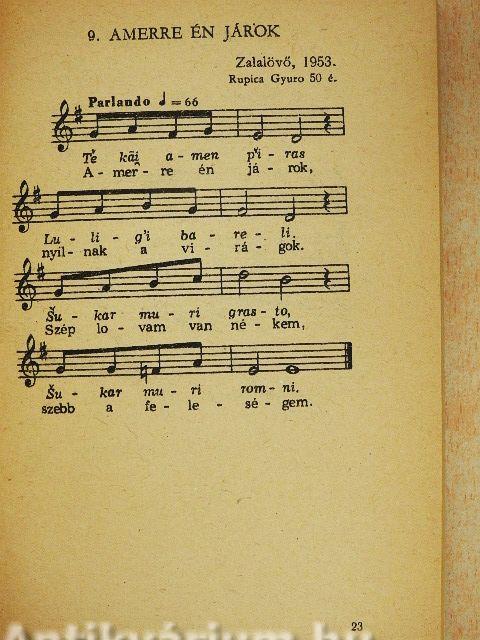 9. AMERRE ÉN JÁROK
Zalalövő, 1953.
Rupica Gyuro 50 é.
Parlando ♩ = 66
Te kăj a - men p'i - ras
A - mer - re én já - rok,
Lu - li - g'i ba - re - li.
nyíl - nak a vi - rá - gok.
Šu - kar mu - ri gras - to,
Szép lo - vam van né - kem,
Šu - kar mu - ri rom - ni.
szebb a fe - le - sé - gem.
23
Antikvárium.hu